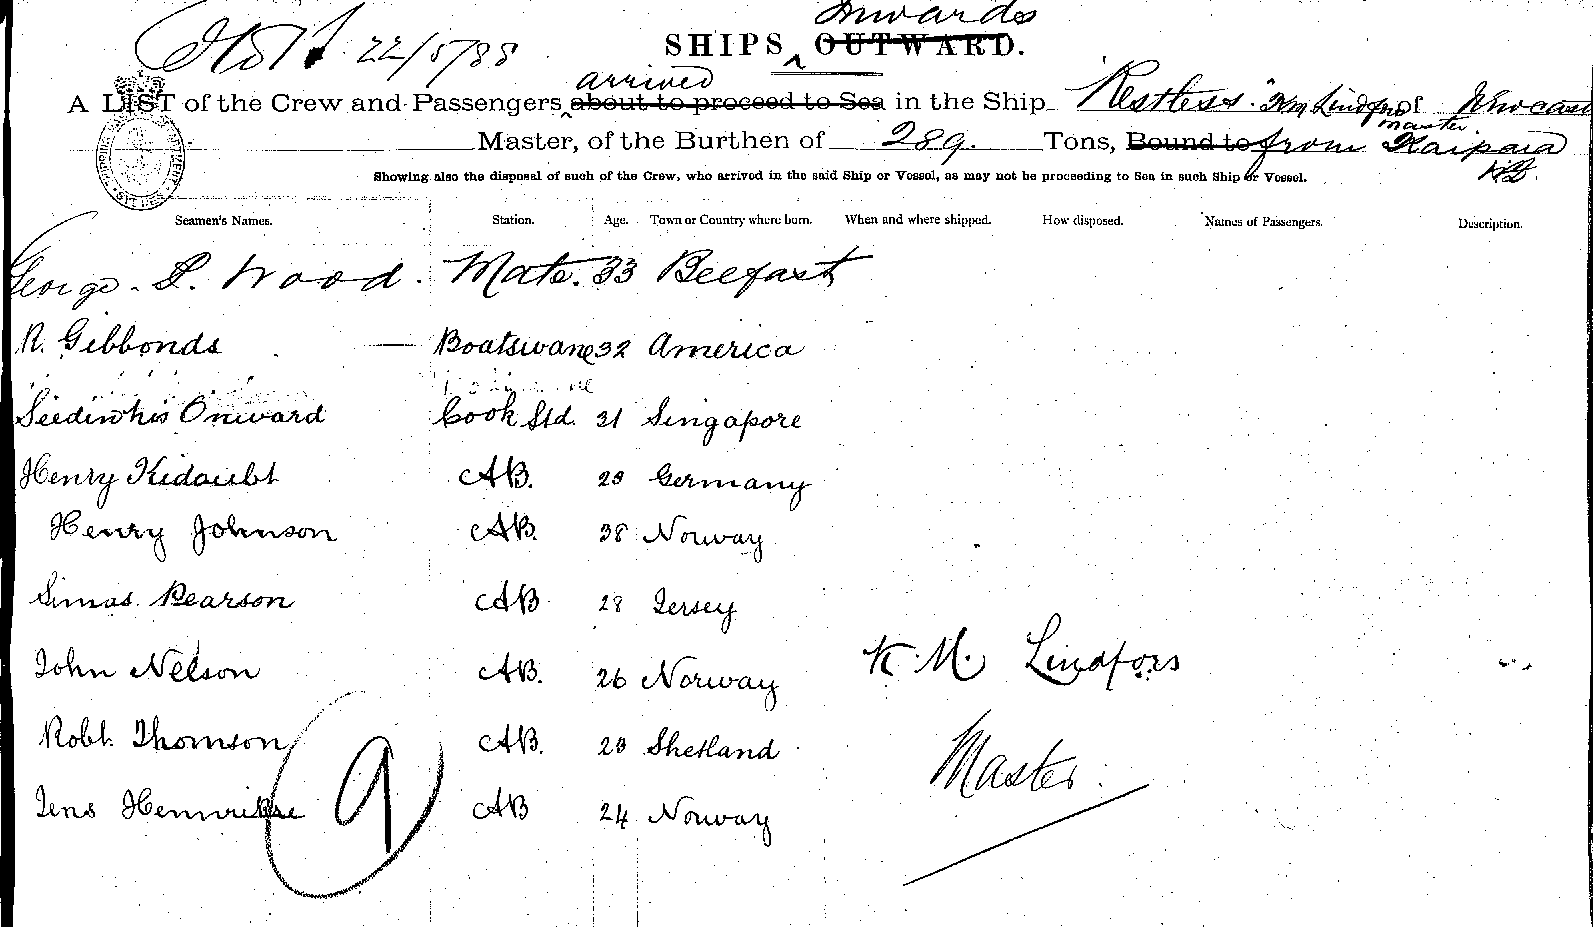 Inwards
22/5/88 SHIPS ^ OUTWARD.
arrived
A LIST of the Crew and Passengers ^ about to proceed to Sea in the Ship "Restless" K M Lindfors of Newcast
master
Master, of the Burthen of 289. Tons, Bound to from Kaipara
NZ.
Showing also the disposal of such of the Crew, who arrived in the said Ship or Vessel, as may not be proceeding to Sea in such Ship or Vessel.
Seamen's Names. Station. Age. Town or Country where born. When and where shipped. How disposed. Names of Passengers. Description.
George S. Wood. Mate. 33 Belfast
R. Gibbonds — Boatswane 32 America
Onward Cook Std. 31 Singapore
Henry AB. Germany
Henry Johnson AB. 38 Norway
Simas Pearson AB 28 Jersey
John Nelson AB. 26 Norway
K. M. Lindfors
Robt. Thomson AB. Shetland
Master.
Jens AB 24 Norway
9